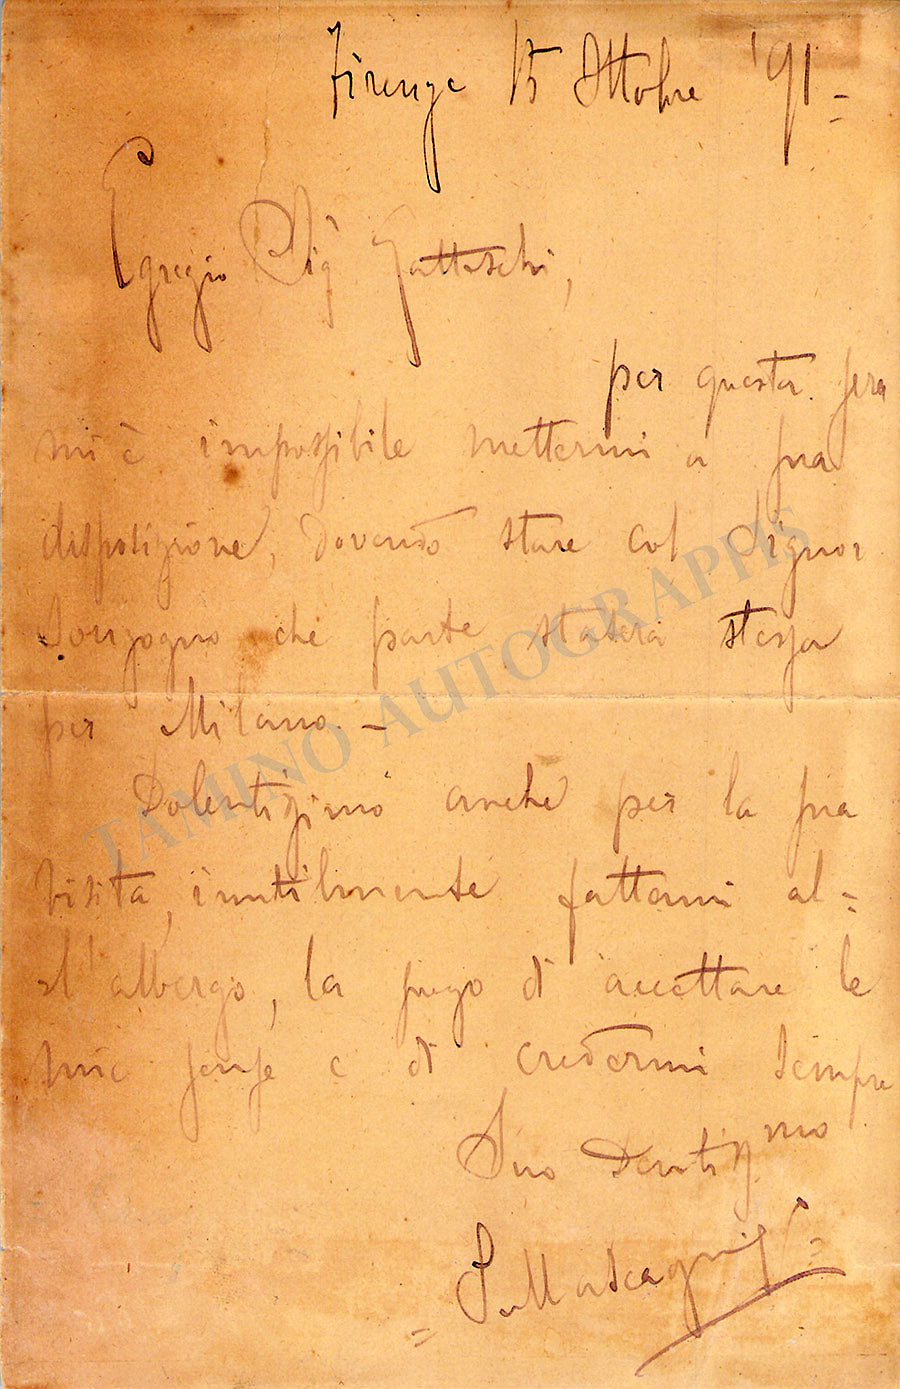 Firenze 15 Ottobre '91 =
Egregio Sigr Gatteschi,
per questa sera
mi è impossibile mettermi a sua
disposizione, dovendo stare col Signor
Sonzogno che parte stasera stessa
per Milano. –
Dolentissimo anche per la sua
visita, inutilmente fattami al=
l'albergo, la prego di accettare le
mie scuse e di credermi sempre
Suo Devotissmo
= P. Mascagni =
TAMINO AUTOGRAPHS